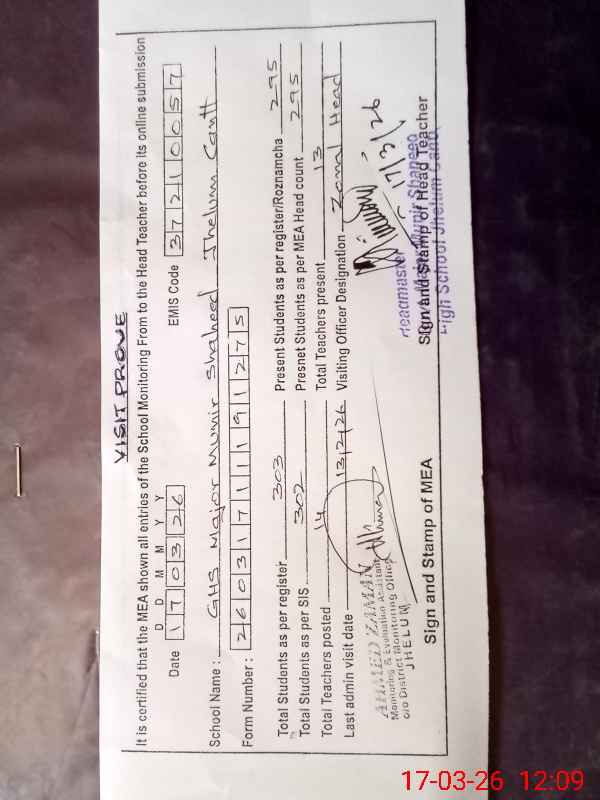 VISIT PROVE
It is certified that the MEA shown all entries of the School Monitoring From to the Head Teacher before its online submission
D D M M Y Y
Date 17 03 26 EMIS Code 37210057
School Name : GHS Major Munir Shaheed Jhelum Cantt
Form Number : 2603171119 1275
Total Students as per register 303 Present Students as per register/Roznamcha 295
Total Students as per SIS 302 Presnet Students as per MEA Head count 295
Total Teachers posted 14 Total Teachers present 13
Last admin visit date 13/2/26 Visiting Officer Designation Zonal Head
17/3/26
AHMED ZAMAN
Monitoring & Evaluation Assistant
o/o District Monitoring Office
JHELUM
Headmaster
Munir Shaheed
High School Jhelum Cantt
Sign and Stamp of MEA Sign and Stamp of Head Teacher
17-03-26 12:09